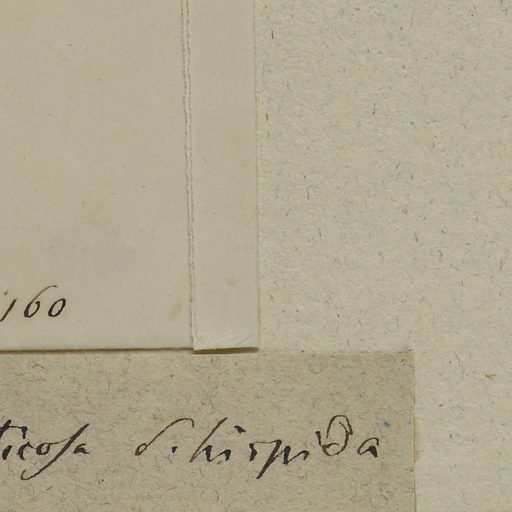 160
ticosa δ. hispida